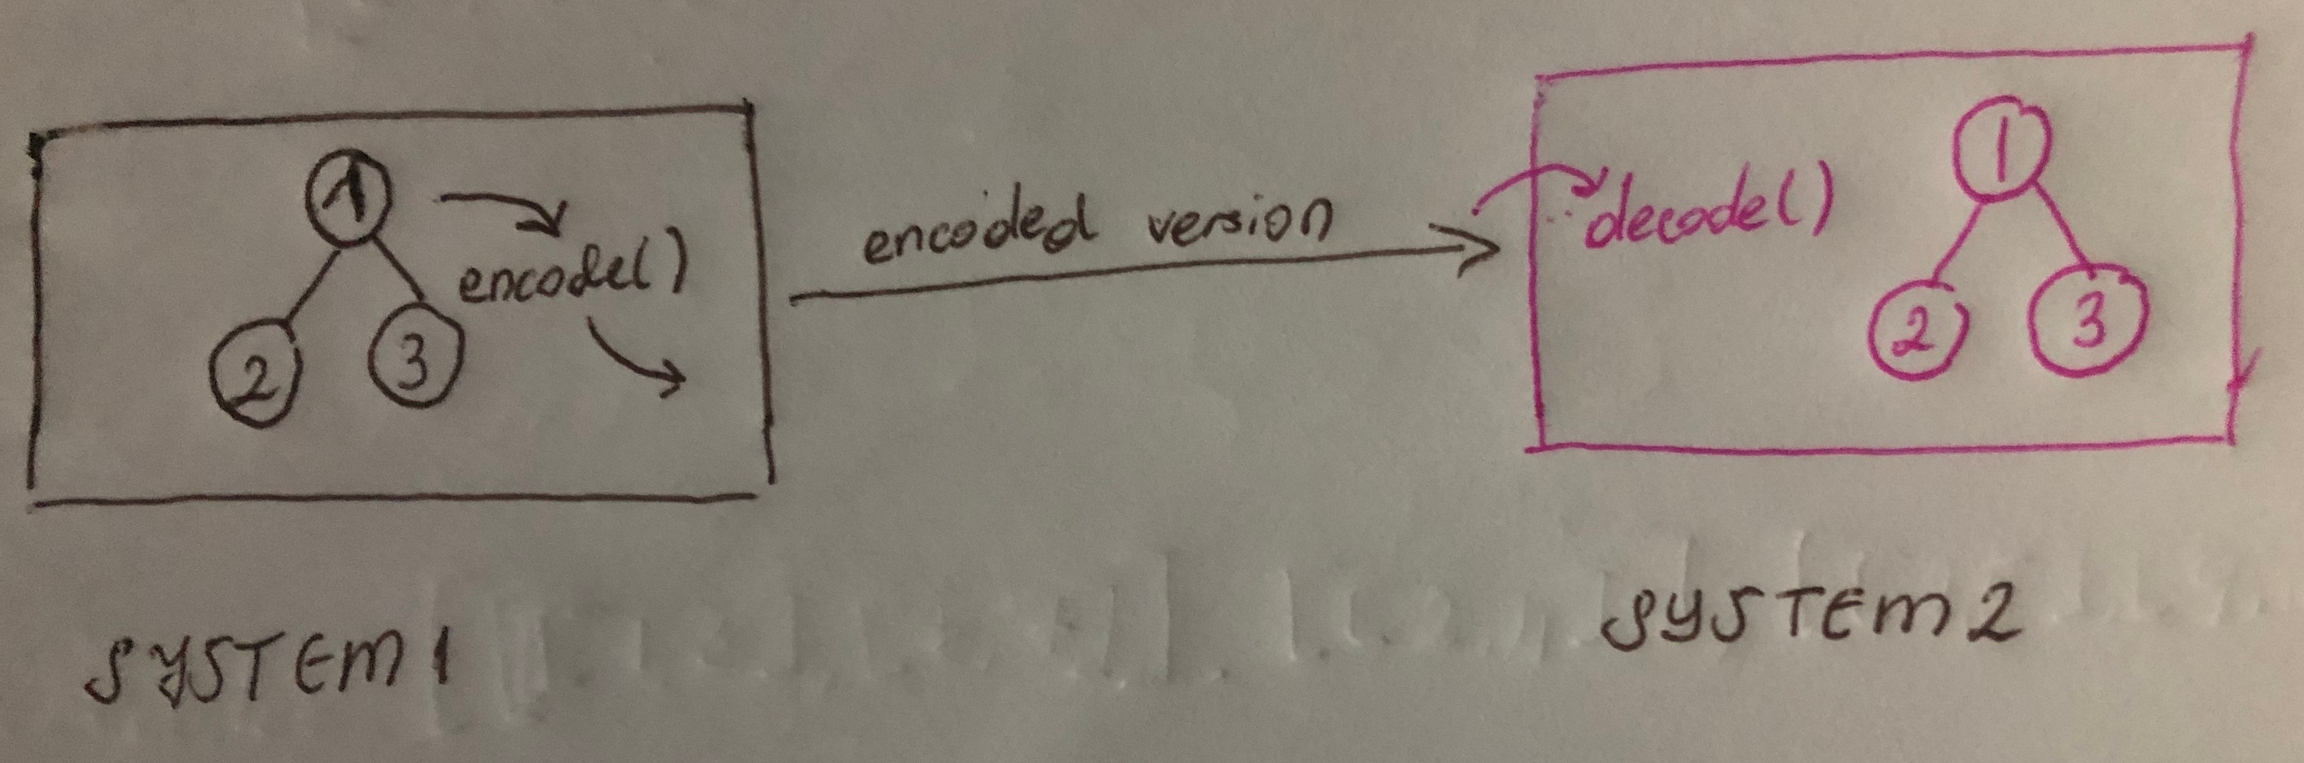 1
encode()
2
3
encoded version
decode()
1
2
3
SYSTEM 1
SYSTEM 2